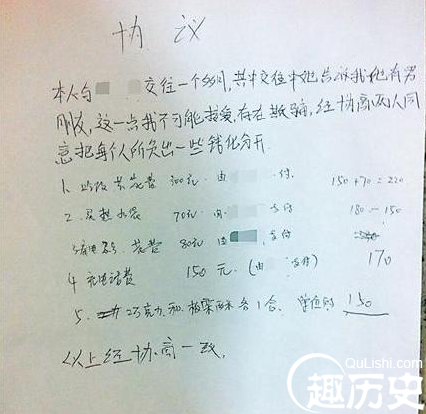 协 议
本人与 交往一个多月,其中交往中她告诉我她有男
朋友,这一点我不可能接受,存在欺骗,经协商两人同
意把每个人所负出一些钱化分开
1、 共花费 300元 由 付 150+70=220
2、买热水袋 70元 由 支付 180-150
3、 花费 80元 由 支付
4、充电话费 150元 (由 支付) 170
5、 巧克力 各1合 150
以上经协商一致。
QuLiShi.com
趣历史